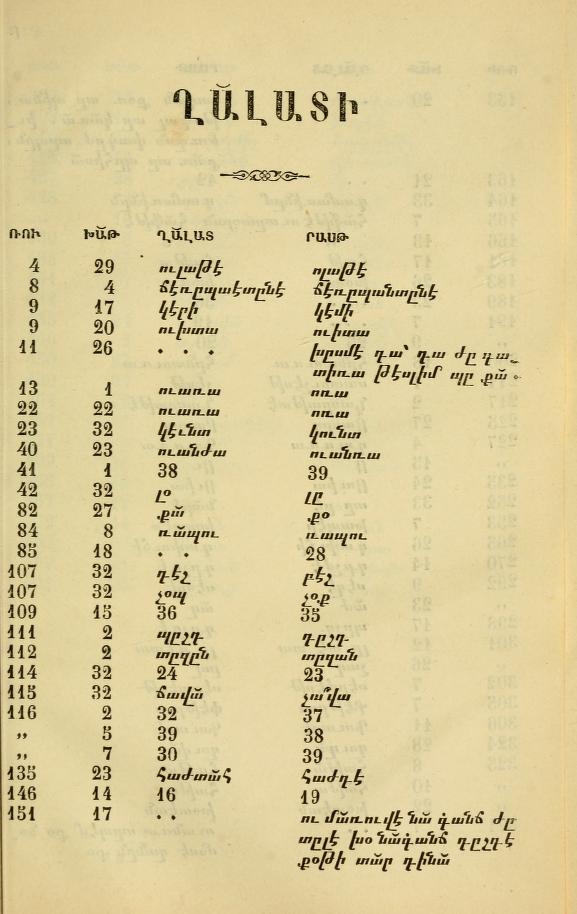 ՂԱ̈ԼԱՏԻ
ՌՈՒ ԽԱ̈Թ ՂԱ̈ԼԱՏ ՐԱՍԹ
4 29 ուլաթէ ոլաթէ
8 4 ճէռըպաէտընէ ճէռըպանտընէ
9 17 կէրի կէմի
9 20 ուխտա ուիտա
11 26 . . . խըսմէ դա՝ դա ժը դա֊
տիռա թէսլիմ պը քա̈ ։
13 1 ուառա ոռա
22 22 ուառա ոռա
23 32 կէւնտ կունտ
40 23 ուանժա ուանռա
41 1 38 39
42 32 լօ լը
82 27 քա̈ քօ
84 8 ռա̈պու ռապու
85 18 . . 28
107 32 դէչ բէչ
107 32 չօպ չօք
109 15 36 35
111 2 պըչդ դըչդ
112 2 տըղըն տըղան
114 32 24 23
115 32 ճավա̈ չա՞վա
116 2 32 37
,, 5 39 38
,, 7 30 39
135 23 հաժտա̈հ հաժդէ
146 14 16 19
151 17 . . ու մա̈ռուվէ նա̈ գանճ ժը
տըլէ խօ նա̈գանճ դըչդէ
քօթի տա̈ր դինա̈